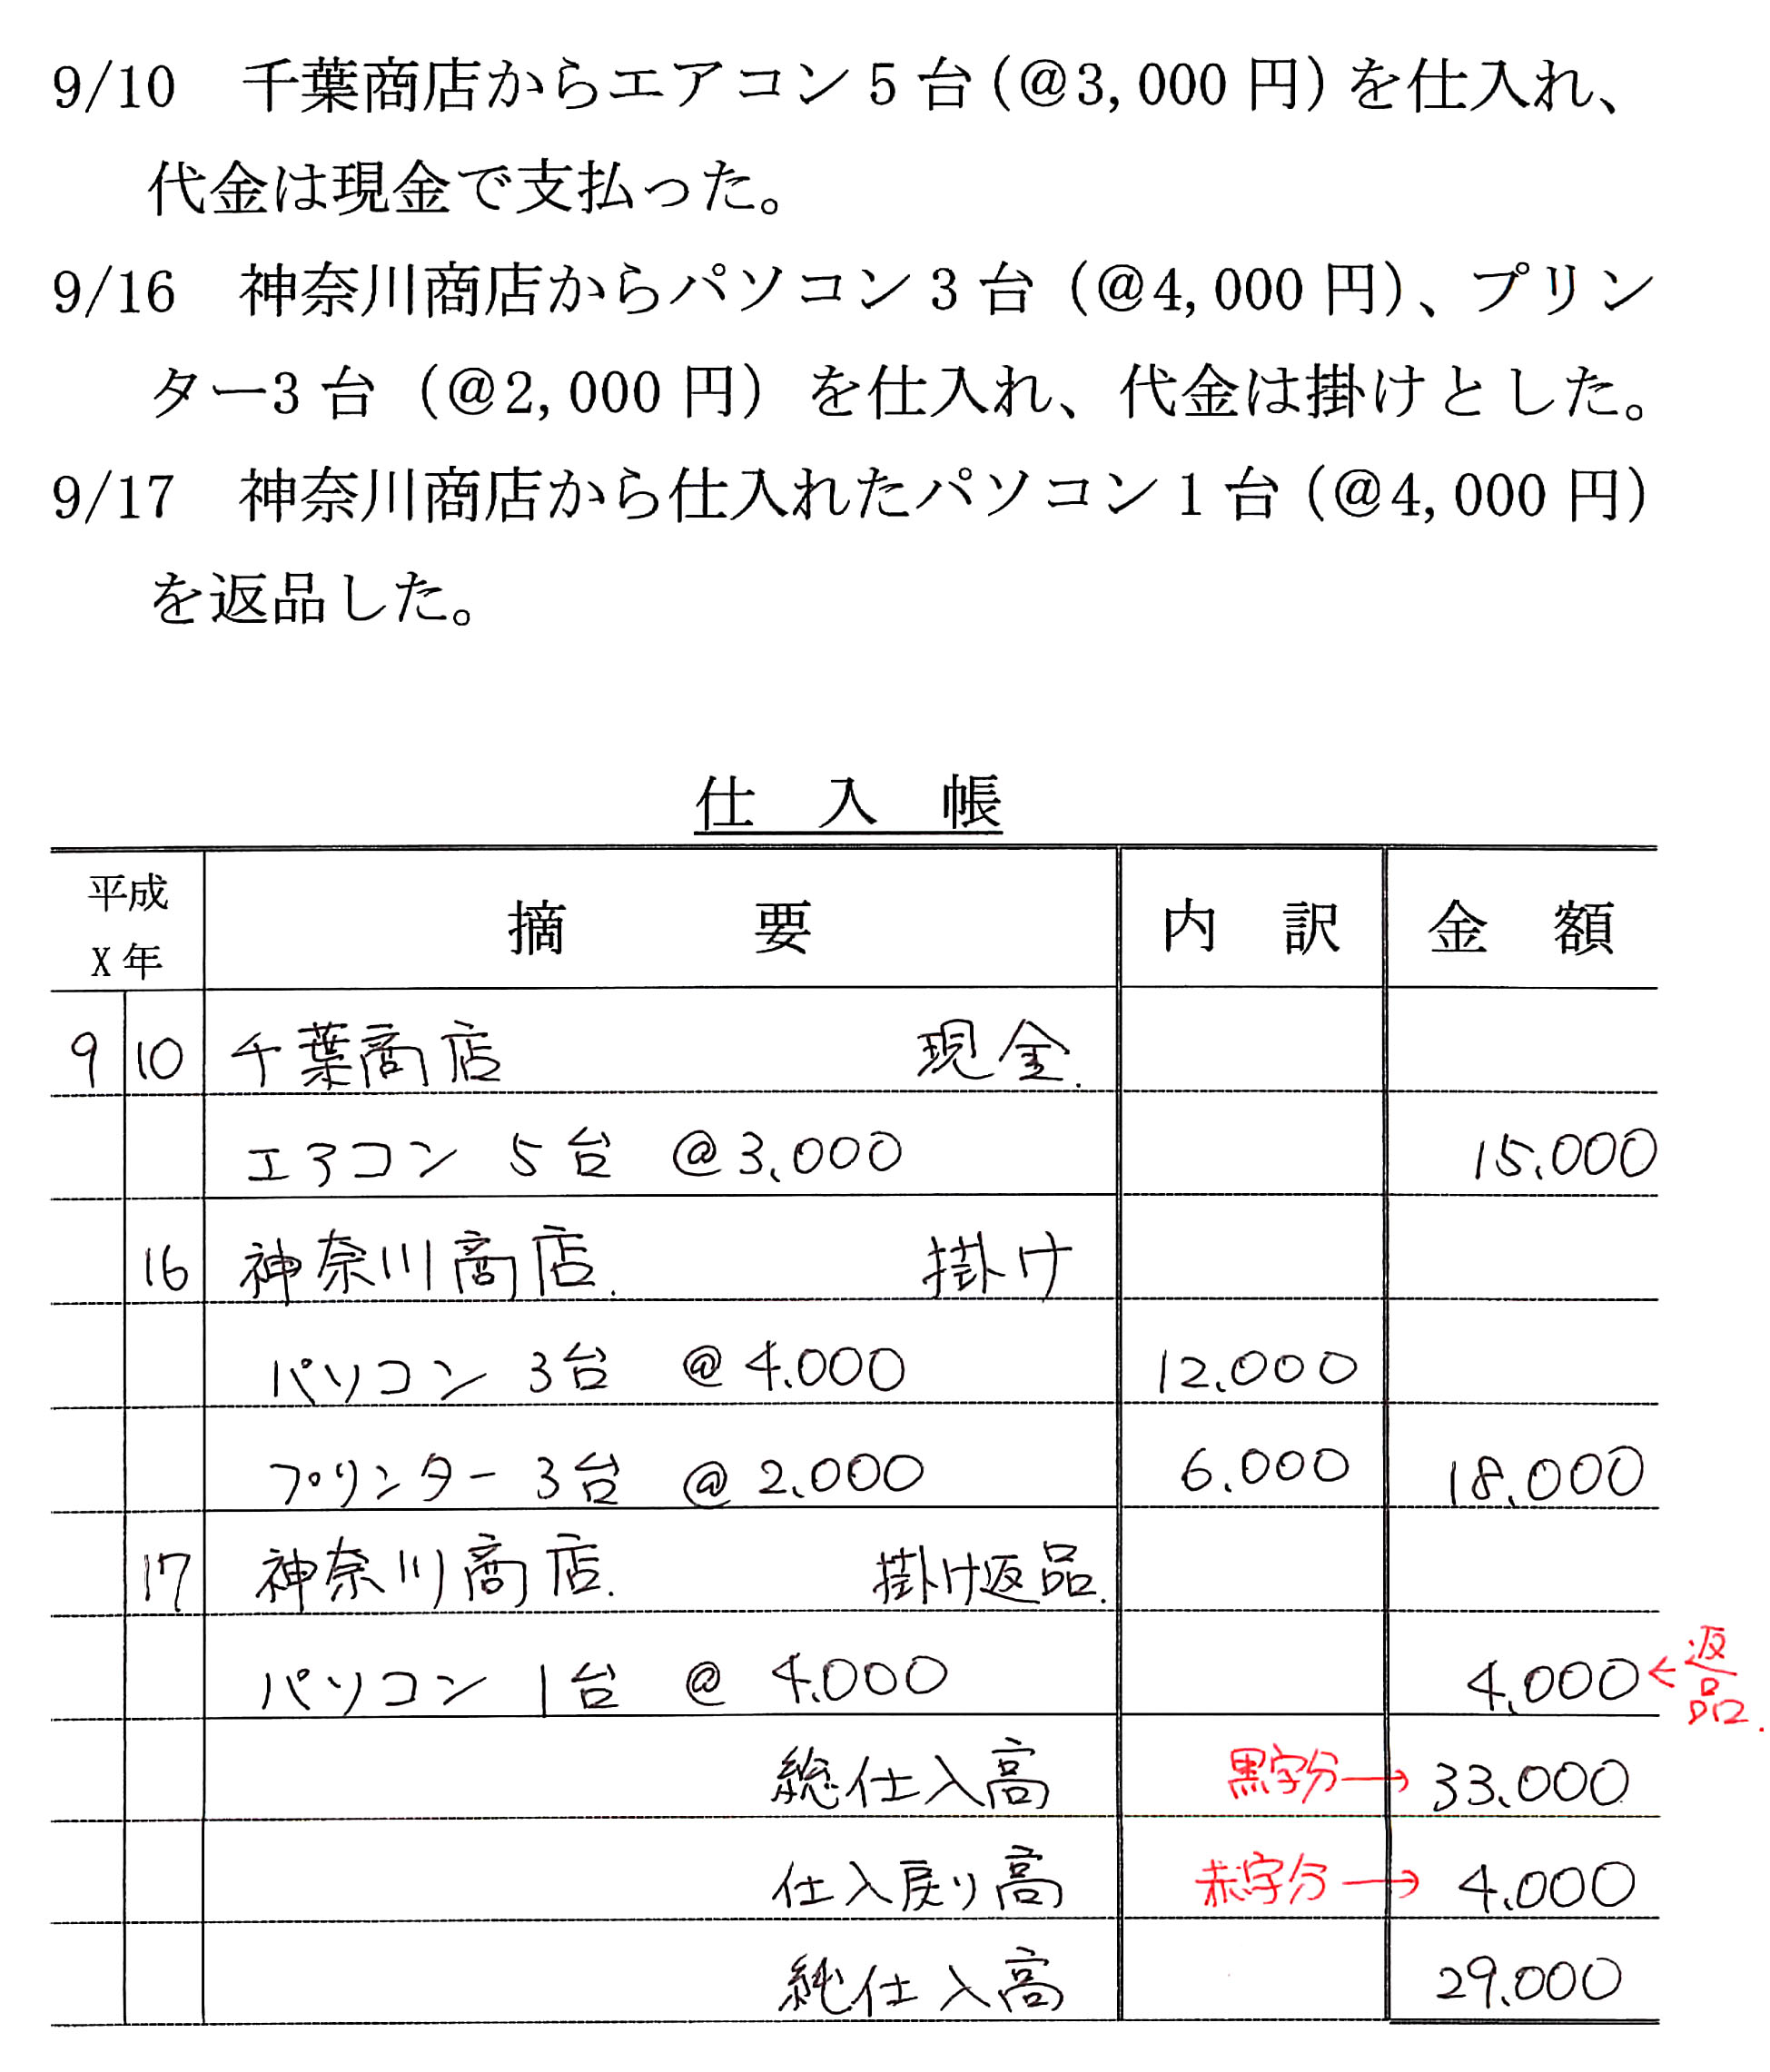 9/10　千葉商店からエアコン5台(@3,000円)を仕入れ、
代金は現金で支払った。
9/16　神奈川商店からパソコン3台(@4,000円)、プリン
ター3台(@2,000円)を仕入れ、代金は掛けとした。
9/17　神奈川商店から仕入れたパソコン1台(@4,000円)
を返品した。
仕　入　帳
平成
X年
摘　要　内　訳　金　額
9 10 千葉商店 現金.
エアコン 5台 @3,000 15,000
16 神奈川商店. 掛け
パソコン 3台 @4,000 12,000
プリンター 3台 @2,000 6,000 18,000
17 神奈川商店. 掛け返品.
パソコン 1台 @4,000 4,000 ←返品.
総仕入高 黒字分→ 33,000
仕入戻り高 赤字分→ 4,000
純仕入高 29,000